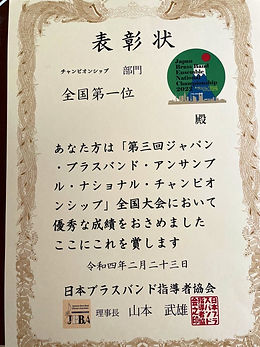 表彰状
チャンピオンシップ 部門
全国第一位
Japan
Brass Band
Ensemble
National
Championship
殿
あなた方は「第三回ジャパン
・ブラスバンド・アンサンブ
ル・ナショナル・チャンピオ
ンシップ」全国大会において
優秀な成績をおさめました
ここにこれを賞します
令和四年二月二十三日
日本ブラスバンド指導者協会
理事長 山本 武雄